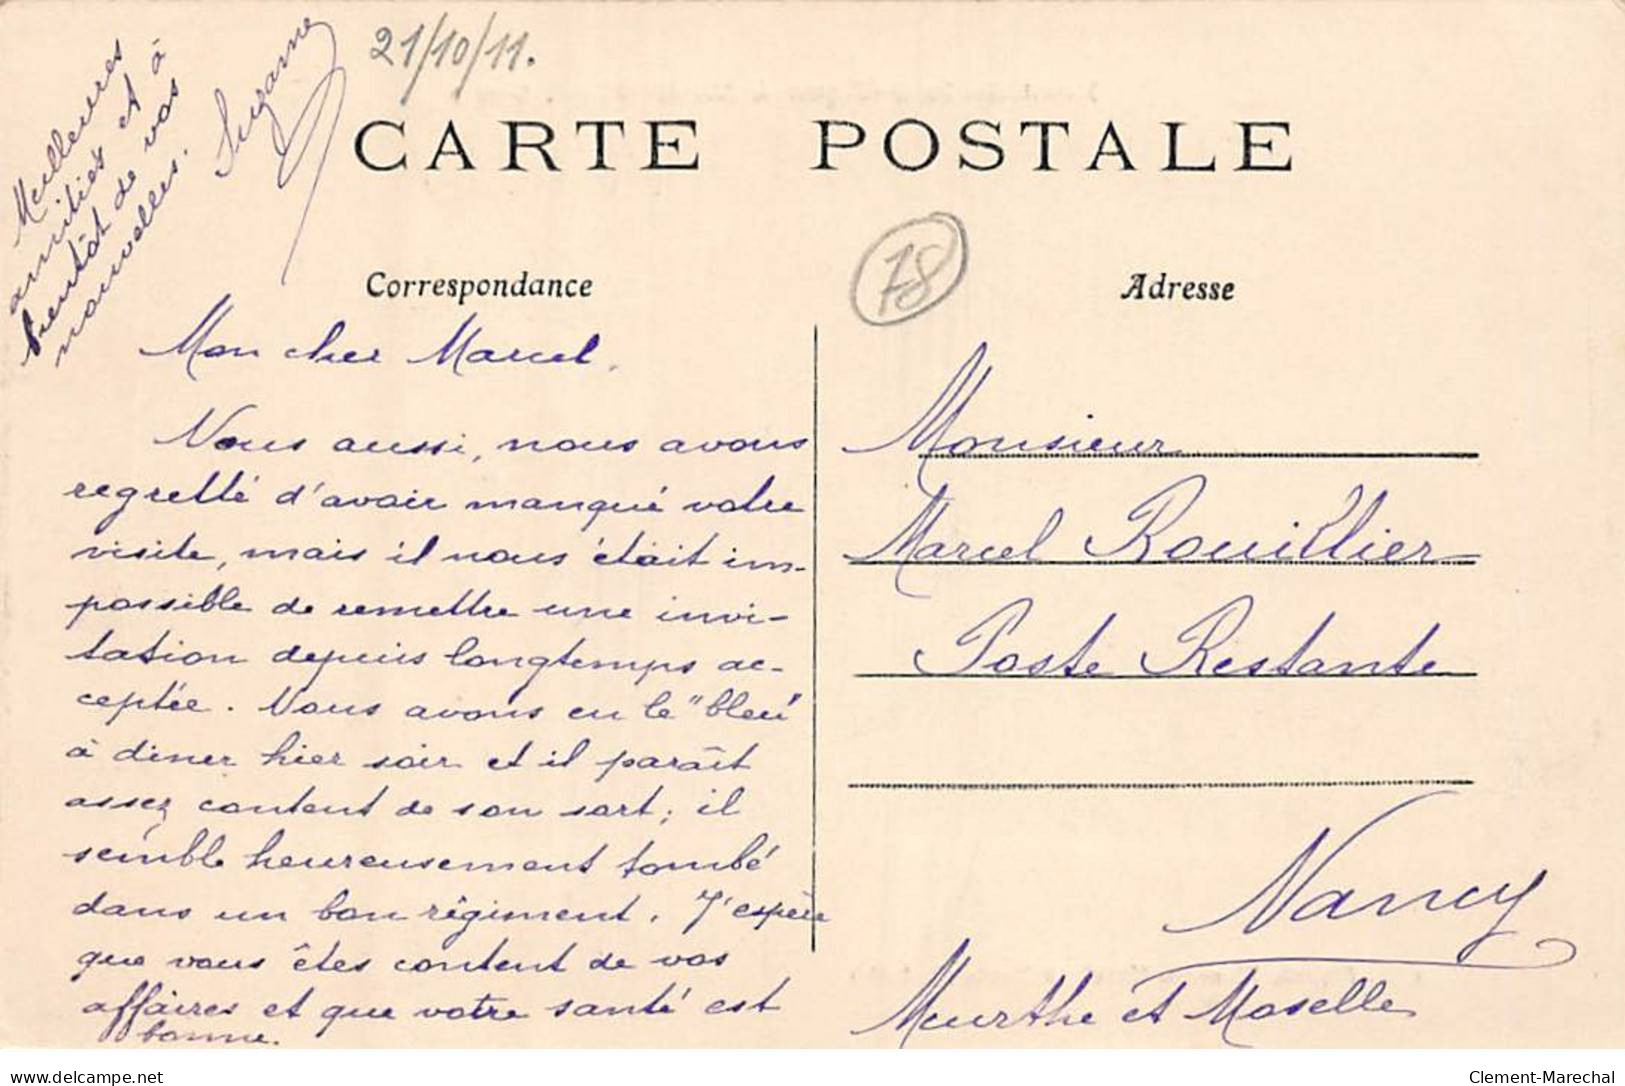 21/10/11.
CARTE POSTALE
78
Correspondance
Adresse
Mon cher Marcel.
Nous aussi, nous avons
regretté d'avoir manqué votre
visite, mais il nous était im-
possible de remettre une invi-
tation depuis longtemps ac-
ceptée. Nous avons eu le "bleu"
à diner hier soir et il paraît
assez content de son sort; il
semble heureusement tombé
dans un bon régiment. J'espère
que vous êtes content de vos
affaires et que votre santé est
bonne.
Meilleures
amitiés et à
bientôt de vos
nouvelles.
Suzanne
Monsieur
Marcel Rouillier
Poste Restante
Nancy
Meurthe et Moselle
delcampe.net
Clement-Marechal